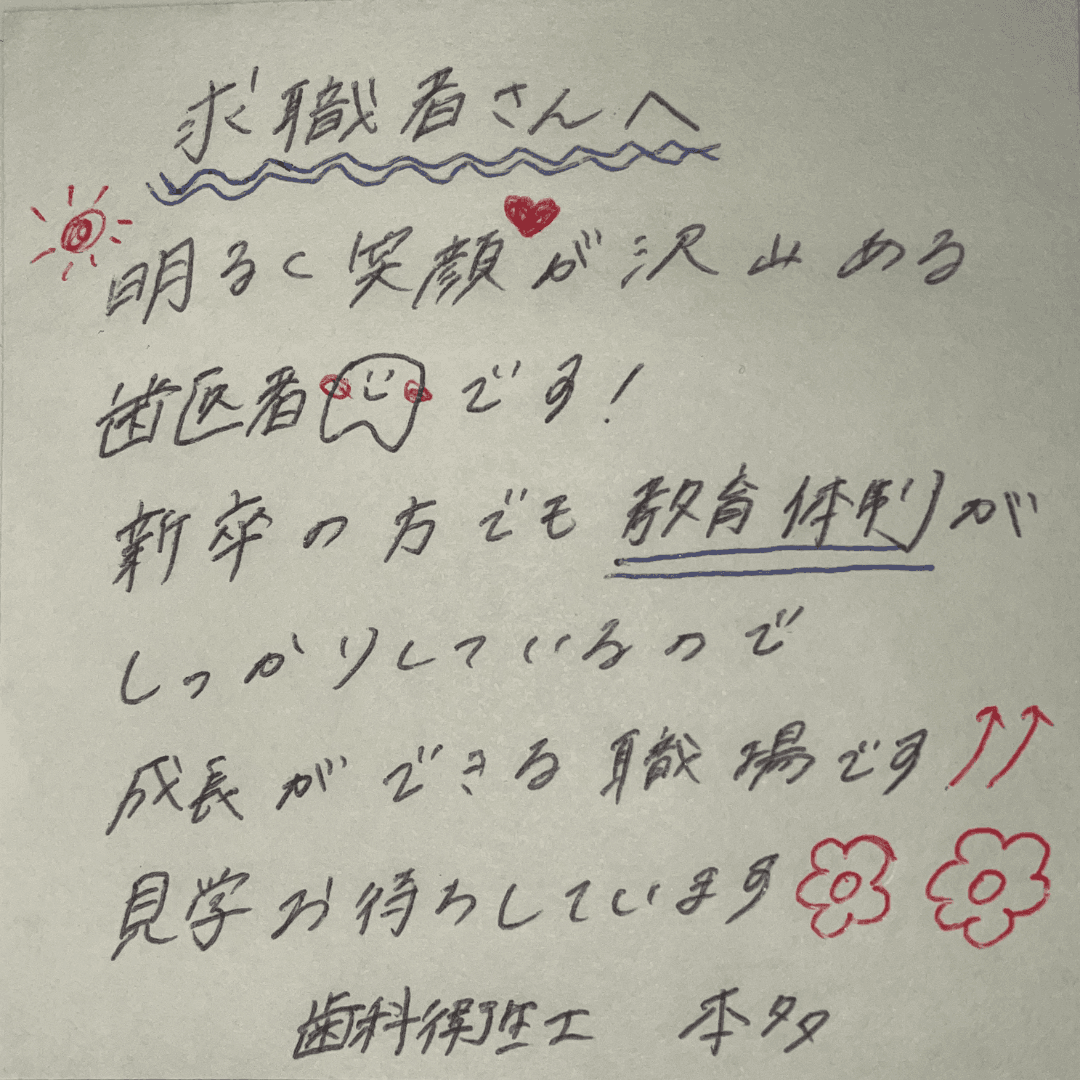 求職者さんへ
明るく笑顔が沢山ある
歯医者です!
新卒の方でも教育体制が
しっかりしているので
成長ができる職場です
見学お待ちしています
歯科衛生士 本多